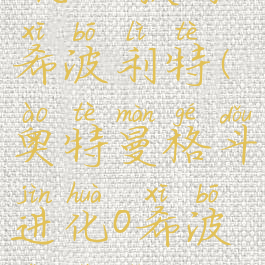 xī bō lì tè
希波利特(
ào tè màn gé dòu
奥特曼格斗
jìn huà xī bō
进化0希波